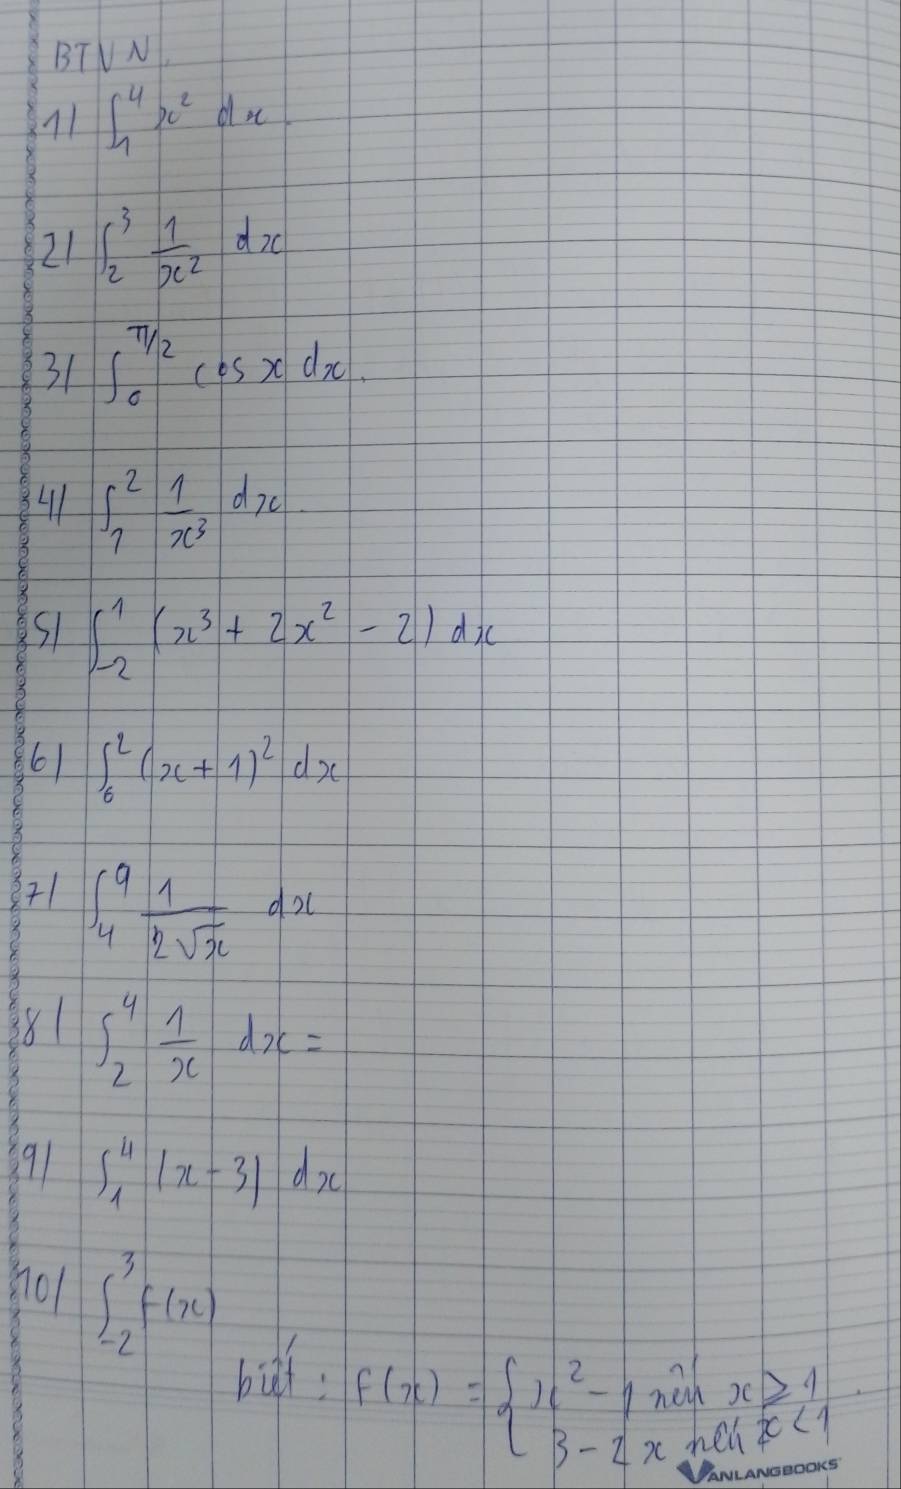 BTVN
1) ∫₁⁴ x² dx
2) ∫₂³ 1/x² dx
3) ∫₀^(π/2) cos x dx.
4) ∫₁² 1/x³ dx
5) ∫₋₂¹ (x³ + 2x² - 2) dx
6) ∫₀² (x + 1)² dx
7) ∫₄⁹ 1/(2√x) dx
8) ∫₂⁴ 1/x dx =
9) ∫₁⁴ |x - 3| dx
10) ∫₋₂³ f(x)
biết : f(x) = { x² - 1 nếu x ≥ 1
3 - 2x nếu x < 1
VANLANGBOOKS